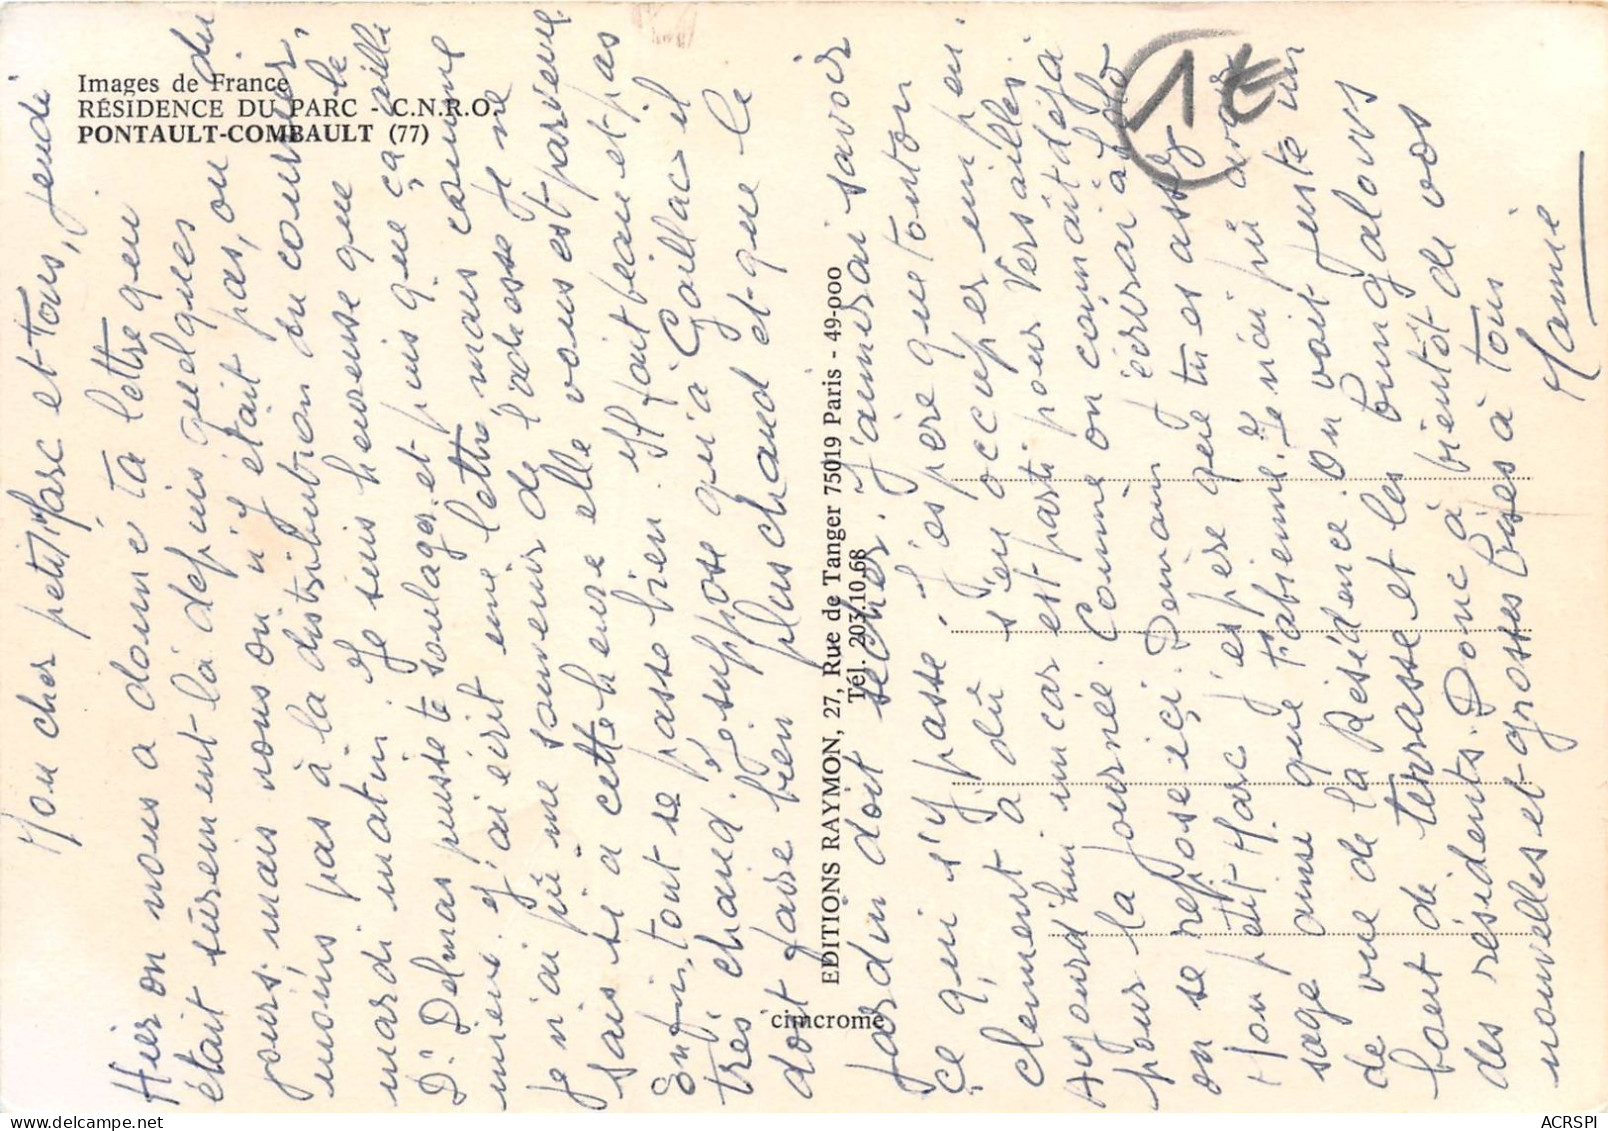 Images de France
RÉSIDENCE DU PARC - C.N.R.O.
PONTAULT-COMBAULT (77)
1€
EDITIONS RAYMON, 27, Rue de Tanger 75019 Paris - 49-000
Tél. 203.10.68
cimcrome
Mon cher petit Marc et Tous, jeudi
Hier on nous a donné ta lettre qui
était sûrement là depuis quelques
jours, mais nous on n'y était pas, ou du
moins pas à la distribution du courrier,
mardi matin. Je suis heureuse que le
Dr Delmas puisse te soulager, et puis que ça aille
mieux. J'ai écrit une lettre mais comme
je n'ai pû me souvenir de l'adresse je ne
sais si à cette heure elle vous est parvenue.
Enfin, tout se passe bien. Il fait beau et pas
très chaud. Je suppose qu'à Gaillac il
doit faire bien plus chaud et que le
jardin doit sécher. J'aimerai savoir
ce qui s'y passe, j'espère que tonton
Clément a dû s'en occuper un peu.
Aujourd'hui un car est parti pour Versailles
pour la journée. Comme on connait déjà
on se repose içi. Demain j'écrirai à Jo
Mon petit Marc j'espère que tu es assez
sage ainsi que Fabienne. Je n'ai pû avoir
de vue de la Résidence. On voit juste un
bout de terrasse et les bungalows
des résidents. Donc à bientôt de vos
nouvelles et grosses bises à tous
Mamie
ACRSPI